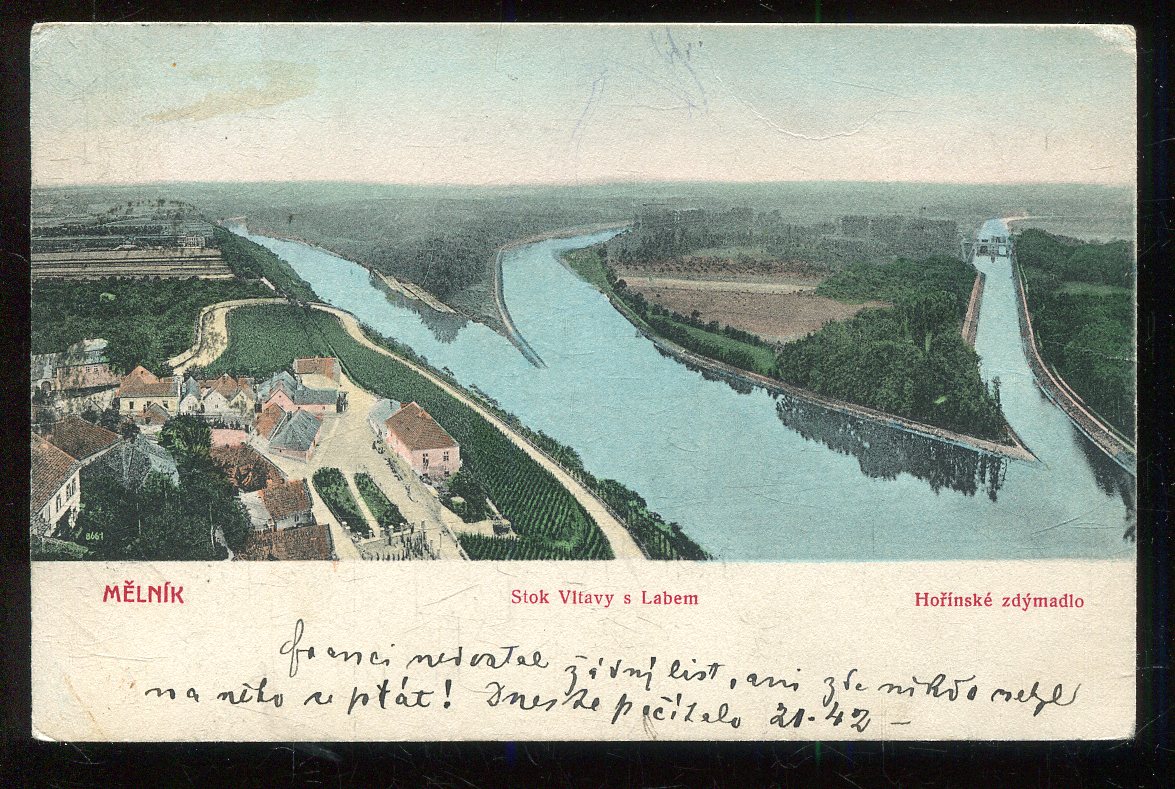 8661
MĚLNÍK
Stok Vltavy s Labem
Hořínské zdýmadlo
franci nedostal žádný list, ani zde nikdo nebyl
na něho se ptát! Dneska 21-42 –